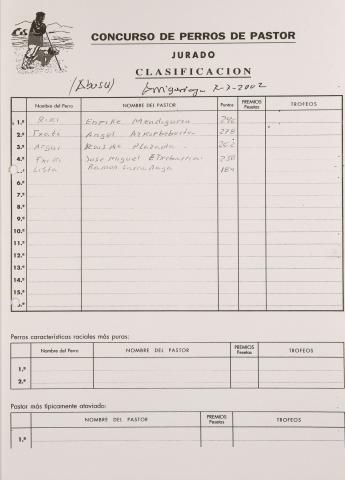 CONCURSO DE PERROS DE PASTOR
JURADO
CLASIFICACION
(Abusu) Arrigorriaga 7-7-2002
Nombre del Perro NOMBRE DEL PASTOR Puntos PREMIOS Pesetas TROFEOS
1.º Enrike Mendiguren
2.º Txata Angel Azkorbebeitia 278
3.º Argui Plazaola 262
4.º Jose Miguel Etxebarria 250
Lista Ramon Larrañaga 184
6.º
7.º
8.º
9.º
10.º
11.º
12.º
13.º
14.º
15.º
Perros características raciales más puras:
Nombre del Perro NOMBRE DEL PASTOR PREMIOS Pesetas TROFEOS
1.º
2.º
Pastor más típicamente ataviado:
NOMBRE DEL PASTOR PREMIOS Pesetas TROFEOS
1.º